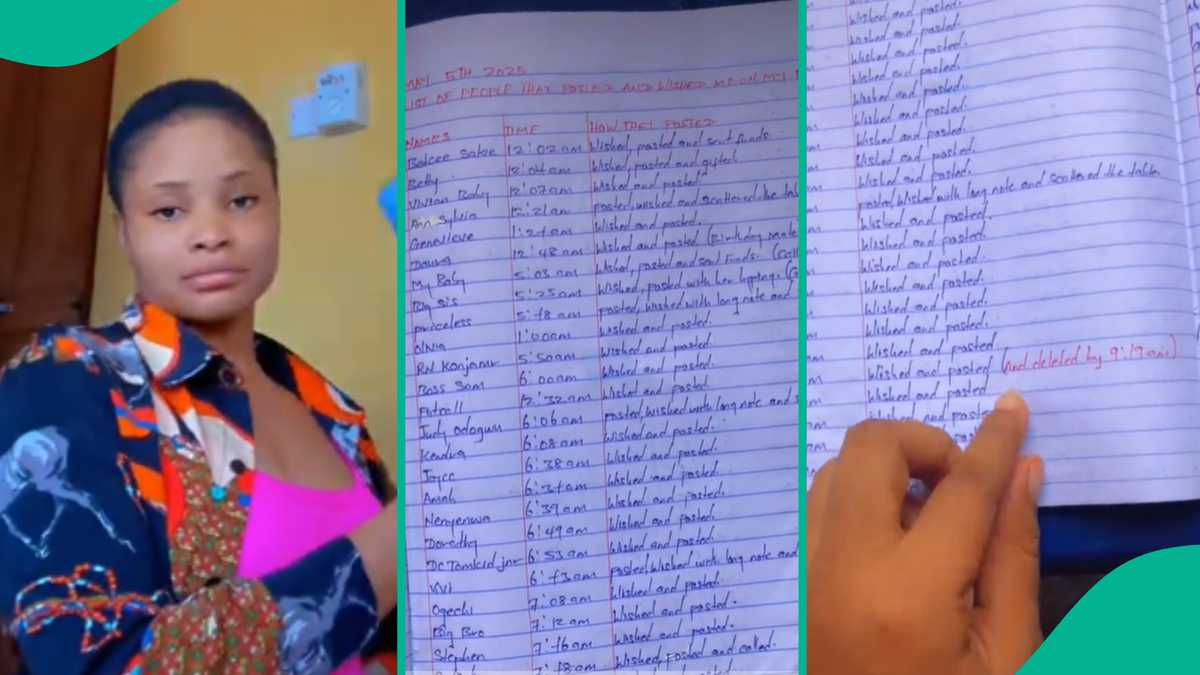 MAY 5TH 2025
LIST OF PEOPLE THAT POSTED AND WISHED ME ON MY
NAMES TIME HOW THEY POSTED
12:02am Wished, posted and sent funds.
Betty 12:04am Wished, posted and gifted.
Vivian Baby 12:07am Wished and posted
Ann Sylvia 12:21am posted, wished and scattered the table
Genevieve Wished and posted.
12:48am Wished and posted (Birthday mate
My Baby 5:03am Wished, posted and sent funds.
Big sis 5:25am Wished, posted with her
priceless posted, wished with long note and
Olivia 1:00am Wished and posted.
5:50am Wished and posted.
Boss Sam 6:00am Wished and posted.
12:32am Wished and posted
Judy Odogwu 6:06am posted, wished with long note and
Kendra 6:08am Wished and posted.
Joyce 6:38am Wished and posted.
Amah Wished and posted
Nenyenwa 6:39am Wished and posted.
Dorothy 6:49am Wished and posted.
6:53am Wished and posted.
Vivi posted, wished with long note and
Ogechi 7:08am Wished and posted.
Big Bro 7:12am Wished and posted.
Stephen Wished and posted.
Wished, posted and called.
Wished and posted.
Wished and posted
Wished and posted.
Wished and posted.
Wished and posted.
Wished and posted.
Wished and posted.
Wished and posted.
Wished and posted.
posted, Wished with long note and scattered the table.
Wished and posted.
Wished and posted.
Wished and posted.
Wished and posted.
Wished and posted.
Wished and posted.
Wished and posted.
Wished and posted (And deleted by 9:19am)
Wished and posted
Wished and posted